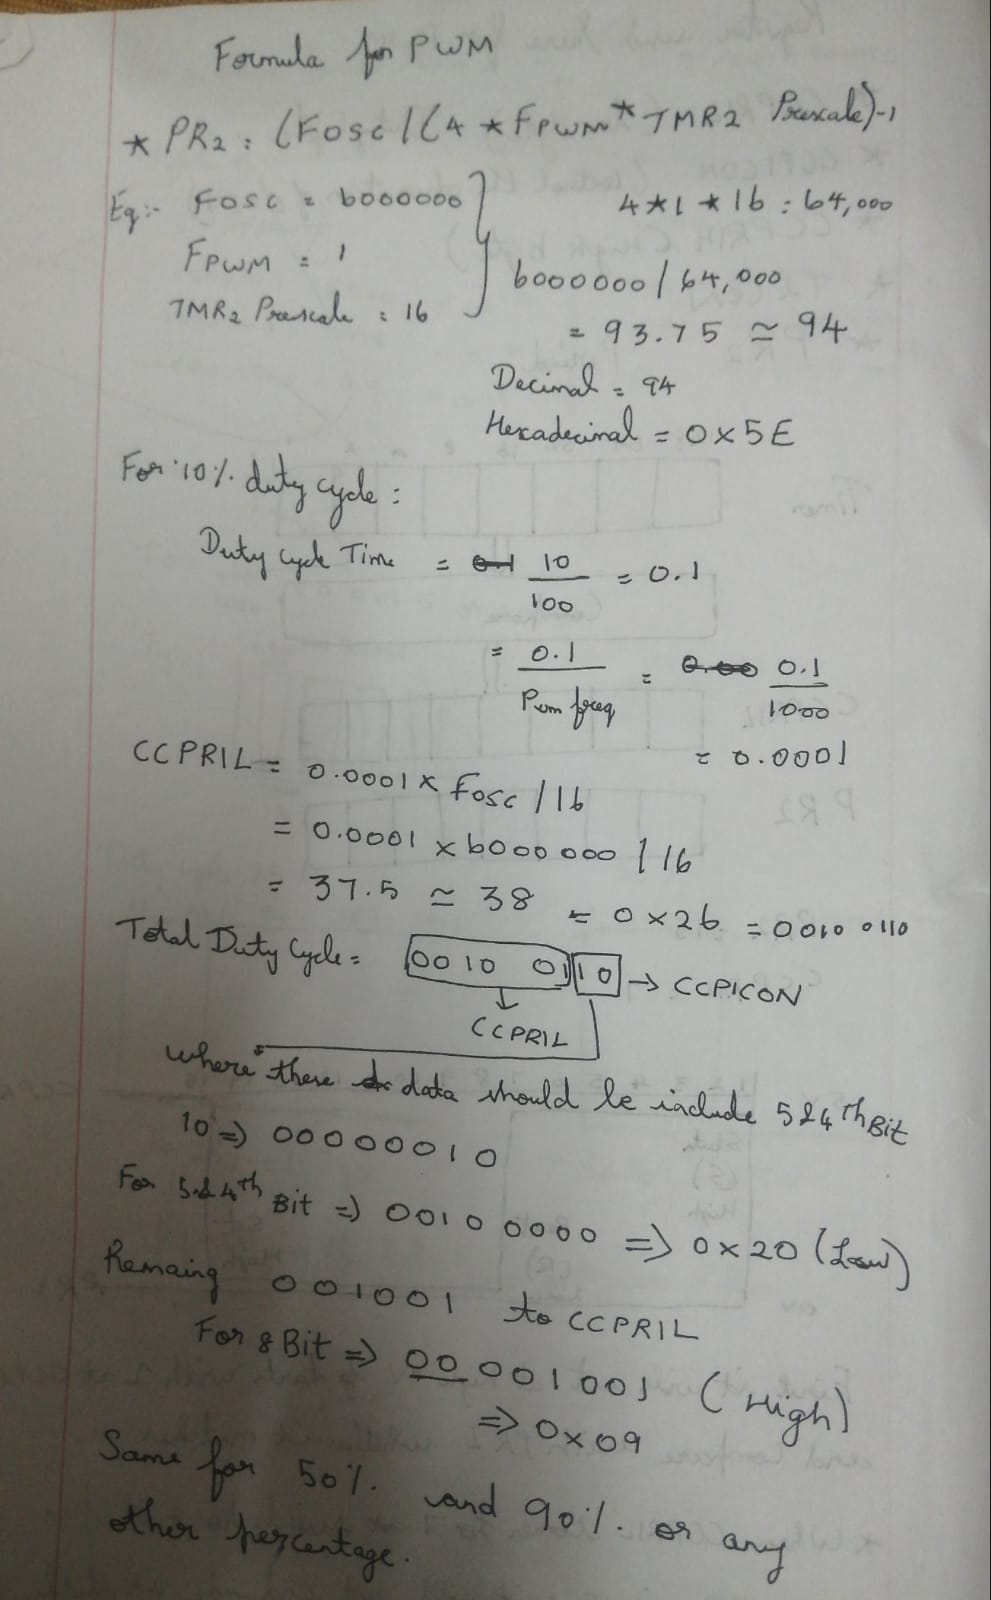 Formula for PWM
* PR2 : (Fosc/(4 * FPWM * TMR2 Prescale)-1
Eg:- Fosc = 6000000
4*1*16 : 64,000
FPWM = 1
6000000/64,000
TMR2 Prescale : 16
= 93.75 ≃ 94
Decimal = 94
Hexadecimal = 0x5E
For 10% duty cycle :
Duty cycle Time = 10/100 = 0.1
= 0.1/Pwm freq = 0.1/1000
= 0.0001
CCPR1L = 0.0001 x Fosc/16
= 0.0001 x 6000000/16
= 37.5 ≃ 38 = 0x26 = 0010 0110
Total Duty Cycle = 0010 01 10 → CCP1CON
CCPR1L
where these data should be include 5&4th Bit
10 => 00000010
For 5&4th Bit => 0010 0000 => 0x20 (Low)
Remaing 001001 to CCPR1L
For 8 Bit => 00001001 (High)
=> 0x09
Same for 50% and 90% or any
other percentage.